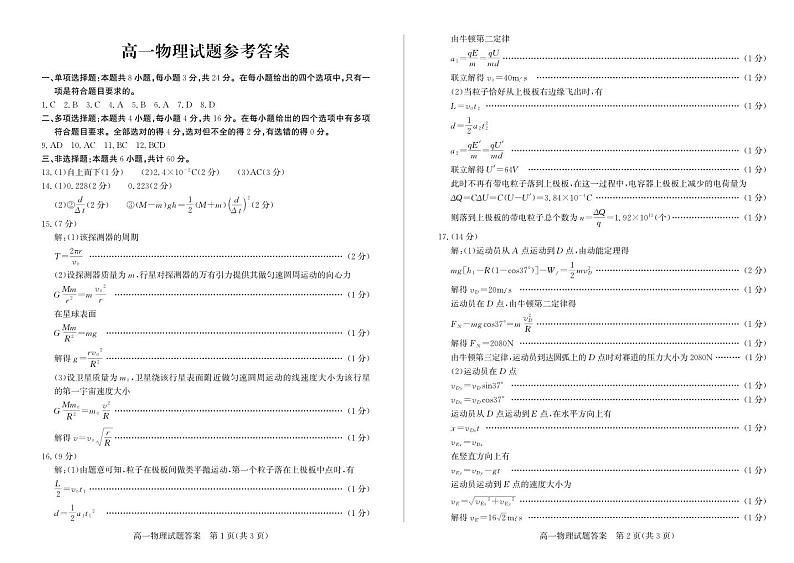 高一物理试题参考答案
一、单项选择题：本题共 8 小题，每小题 3 分，共 24 分。在每小题给出的四个选项中，只有一
项是符合题目要求的。
1.C 2.B 3.C 4.A 5.B 6.A 7.D 8.D
二、多项选择题：本题共 4 小题，每小题 4 分，共 16 分。在每小题给出的四个选项中有多项
符合题目要求。全部选对的得 4 分，选对但不全的得 2 分，有选错的得 0 分。
9.AD 10.AC 11.BC 12.BCD
三、非选择题：本题共 6 小题，共计 60 分。
13.(1)自上而下(1 分) (2)2.4×10⁻²C(2 分) (3)AC(3 分)
14.(1)0.228(2 分) 0.223(2 分)
(2)② d/Δt (2 分) ③(M－m)gh＝1/2(M＋m)(d/Δt)²(2 分)
15.(7 分)
解：(1)该探测器的周期
T＝2πr/v₀ ……(2 分)
(2)设探测器质量为 m，行星对探测器的万有引力提供其做匀速圆周运动的向心力
G Mm/r²＝m v₀²/r ……(1 分)
在星球表面
G Mm/R²＝mg ……(1 分)
解得 g＝rv₀²/R² ……(1 分)
(3)设卫星质量为 m₀，卫星绕该行星表面附近做匀速圆周运动的线速度大小为该行星
的第一宇宙速度大小
G Mm₀/R²＝m₀ v²/R ……(1 分)
解得 v＝v₀√(r/R) ……(1 分)
16.(9 分)
解：(1)由题意可知，粒子在极板间做类平抛运动，第一个粒子落在上极板中点时，有
L/2＝v₀t₁ ……(1 分)
d＝1/2 a₁t₁² ……(1 分)
高一物理试题答案 第 1 页(共 3 页)
由牛顿第二定律
a₁＝qE/m＝qU/md ……(1 分)
联立解得 v₀＝40m/s ……(1 分)
(2)当粒子恰好从上极板右边缘飞出时，有
L＝v₀t₂ ……(1 分)
d＝1/2 a₂t₂²
a₂＝qE′/m＝qU′/md ……(1 分)
联立解得 U′＝64V ……(1 分)
此时不再有带电粒子落到上极板，在这一过程中，电容器上极板上减少的电荷量为
ΔQ＝CΔU＝C(U－U′)＝3.84×10⁻⁴C ……(1 分)
则落到上极板的带电粒子总个数为 n＝ΔQ/q＝1.92×10¹¹(个) ……(1 分)
17.(14 分)
解：(1)运动员从 A 点运动到 D 点，由动能定理得
mg[h₁－R(1－cos37°)]－W_f＝1/2 mv_D² ……(2 分)
解得 v_D＝20m/s ……(1 分)
运动员在 D 点，由牛顿第二定律得
F_N－mgcos37°＝m v_D²/R ……(1 分)
解得 F_N＝2080N ……(1 分)
由牛顿第三定律，运动员到达圆弧上的 D 点时对赛道的压力大小为 2080N ……(1 分)
(2)运动员在 D 点
v_Dy＝v_Dsin37° ……(1 分)
v_Dx＝v_Dcos37° ……(1 分)
运动员从 D 点运动到 E 点，在水平方向上有
x＝v_Dxt ……(1 分)
v_Ex＝v_Dx
在竖直方向上有
v_Ey＝v_Dy－gt ……(1 分)
运动员运动到 E 点的速度大小为
v_E＝√(v_Ex²＋v_Ey²) ……(1 分)
解得 v_E＝16√2m/s ……(1 分)
高一物理试题答案 第 2 页(共 3 页)